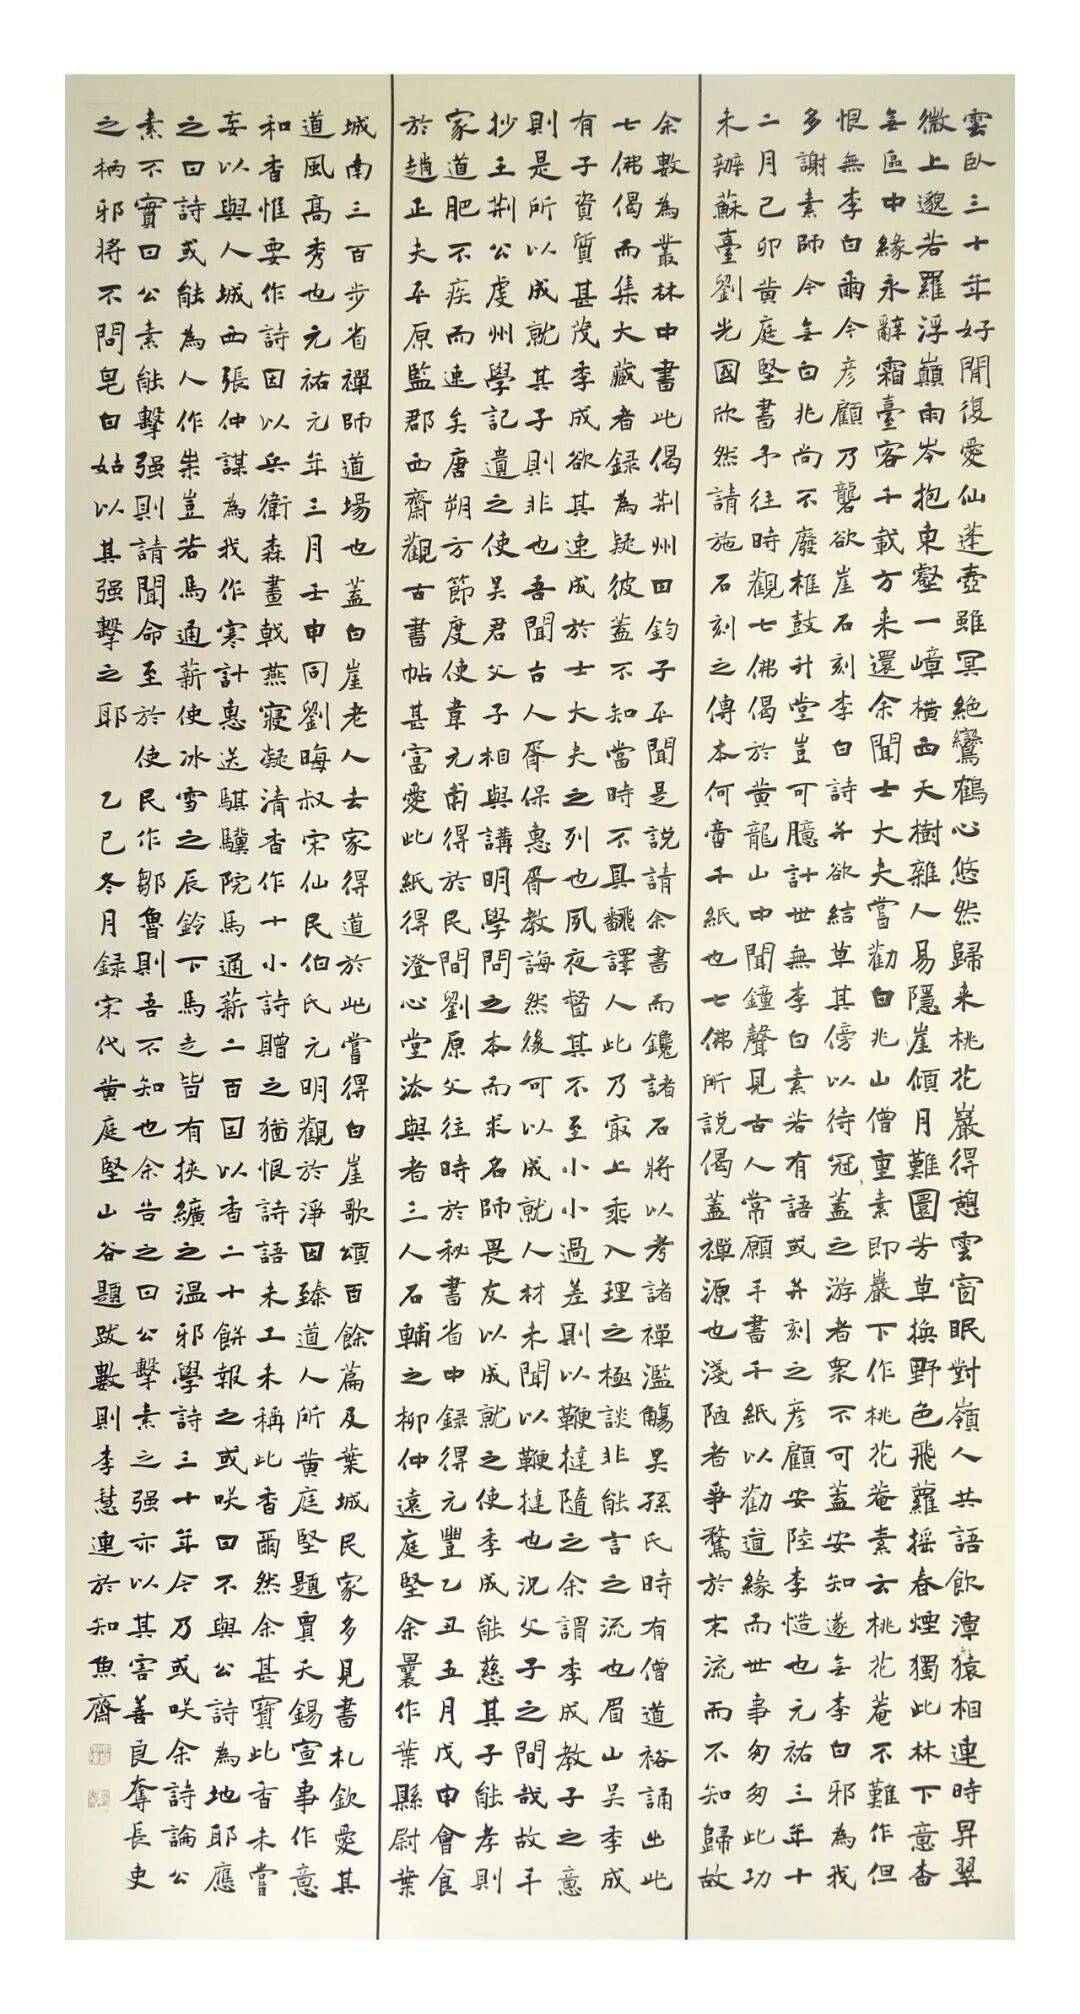 雲臥三十年好閒復愛仙蓬壺雖冥絕鸞鶴心悠然歸来桃花巖得憩雲窗眠對嶺人共語飲潭猿相連時昇翠
微上邈若羅浮巔兩岑抱東壑一嶂橫西天樹雜人易隱崖傾月難圓芳草換野色飛蘿揺春煙獨此林下意杳
無區中緣永辭霜臺客千載方来還余聞士大夫嘗勸白兆山僧重素即巖下作桃花菴素云桃花菴不難作但
恨無李白爾今彥顧乃礱欲崖石刻李白詩并欲結草其傍以待冠蓋之游者衆不可蓋安知遂無李白邪為我
多謝素師今無白兆尚不廢椎鼓升堂豈可臆計世無李白素若有語或并刻之彥顧安陸李愷也元祐三年十
二月己卯黄庭堅書予往時觀七佛偈於黄龍山中聞鐘聲見古人常願手書千紙以勸道緣而世事匆匆此功
未辦蘇臺劉光國欣然請施石刻之傳本何啻千紙也七佛所説偈蓋禪源也淺陋者爭騖於末流而不知歸故
余數為叢林中書此偈荆州田鈞子平聞是説請余書而鑱諸石將以考諸禪濫觴吴孫氏時有僧道裕誦出此
七佛偈而集大藏者録為疑彼蓋不知當時不具翻譯人此乃最上乘入理之極談非能言之流也眉山吴季成
有子資質甚茂季成欲其速成於士大夫之列也夙夜督其不至小小過差則以鞭撻隨之余謂季成教子之意
則是所以成就其子則非也吾聞古人胥保惠胥教誨然後可以成就人材未聞以鞭撻也況父子之間哉故手
抄王荆公虔州學記遺之使吴君父子相與講明學問之本而求名師畏友以成就之使季成能慈其子能孝則
家道肥不疾而速矣唐朔方節度使韋元甫得於民間劉原父往時於秘書省中録得元豐乙丑五月戊申會食
於趙正夫平原監郡西齋觀古書帖甚富愛此紙得澄心堂法與者三人石輔之柳仲遠庭堅余曩作葉縣尉葉
城南三百步省禪師道場也蓋白崖老人去家得道於此嘗得白崖歌頌百餘篇及葉城民家多見書札欽愛其
道風高秀也元祐元年三月壬申同劉晦叔宋仙民伯氏元明觀於淨因臻道人所黄庭堅題賈天錫宣事作意
和香惟要作詩因以兵衛森畫戟燕寢凝清香作十小詩贈之猶恨詩語未工未稱此香爾然余甚寶此香未嘗
妄以與人城西張仲謀為我作寒計惠送騏驥院馬通薪二百因以香二十餅報之或咲曰不與公詩為地耶應
之曰詩或能為人作祟豈若馬通薪使冰雪之辰鈴下馬走皆有挾纊之温邪學詩三十年今乃或咲余詩論公
素不實曰公素能擊强則請聞命至於使民作鄒魯則吾不知也余告之曰公擊素之强亦以其害善良奪長吏
之柄邪將不問皂白姑以其强擊之耶　乙巳冬月録宋代黄庭堅山谷題跋數則李慧連於知魚齋